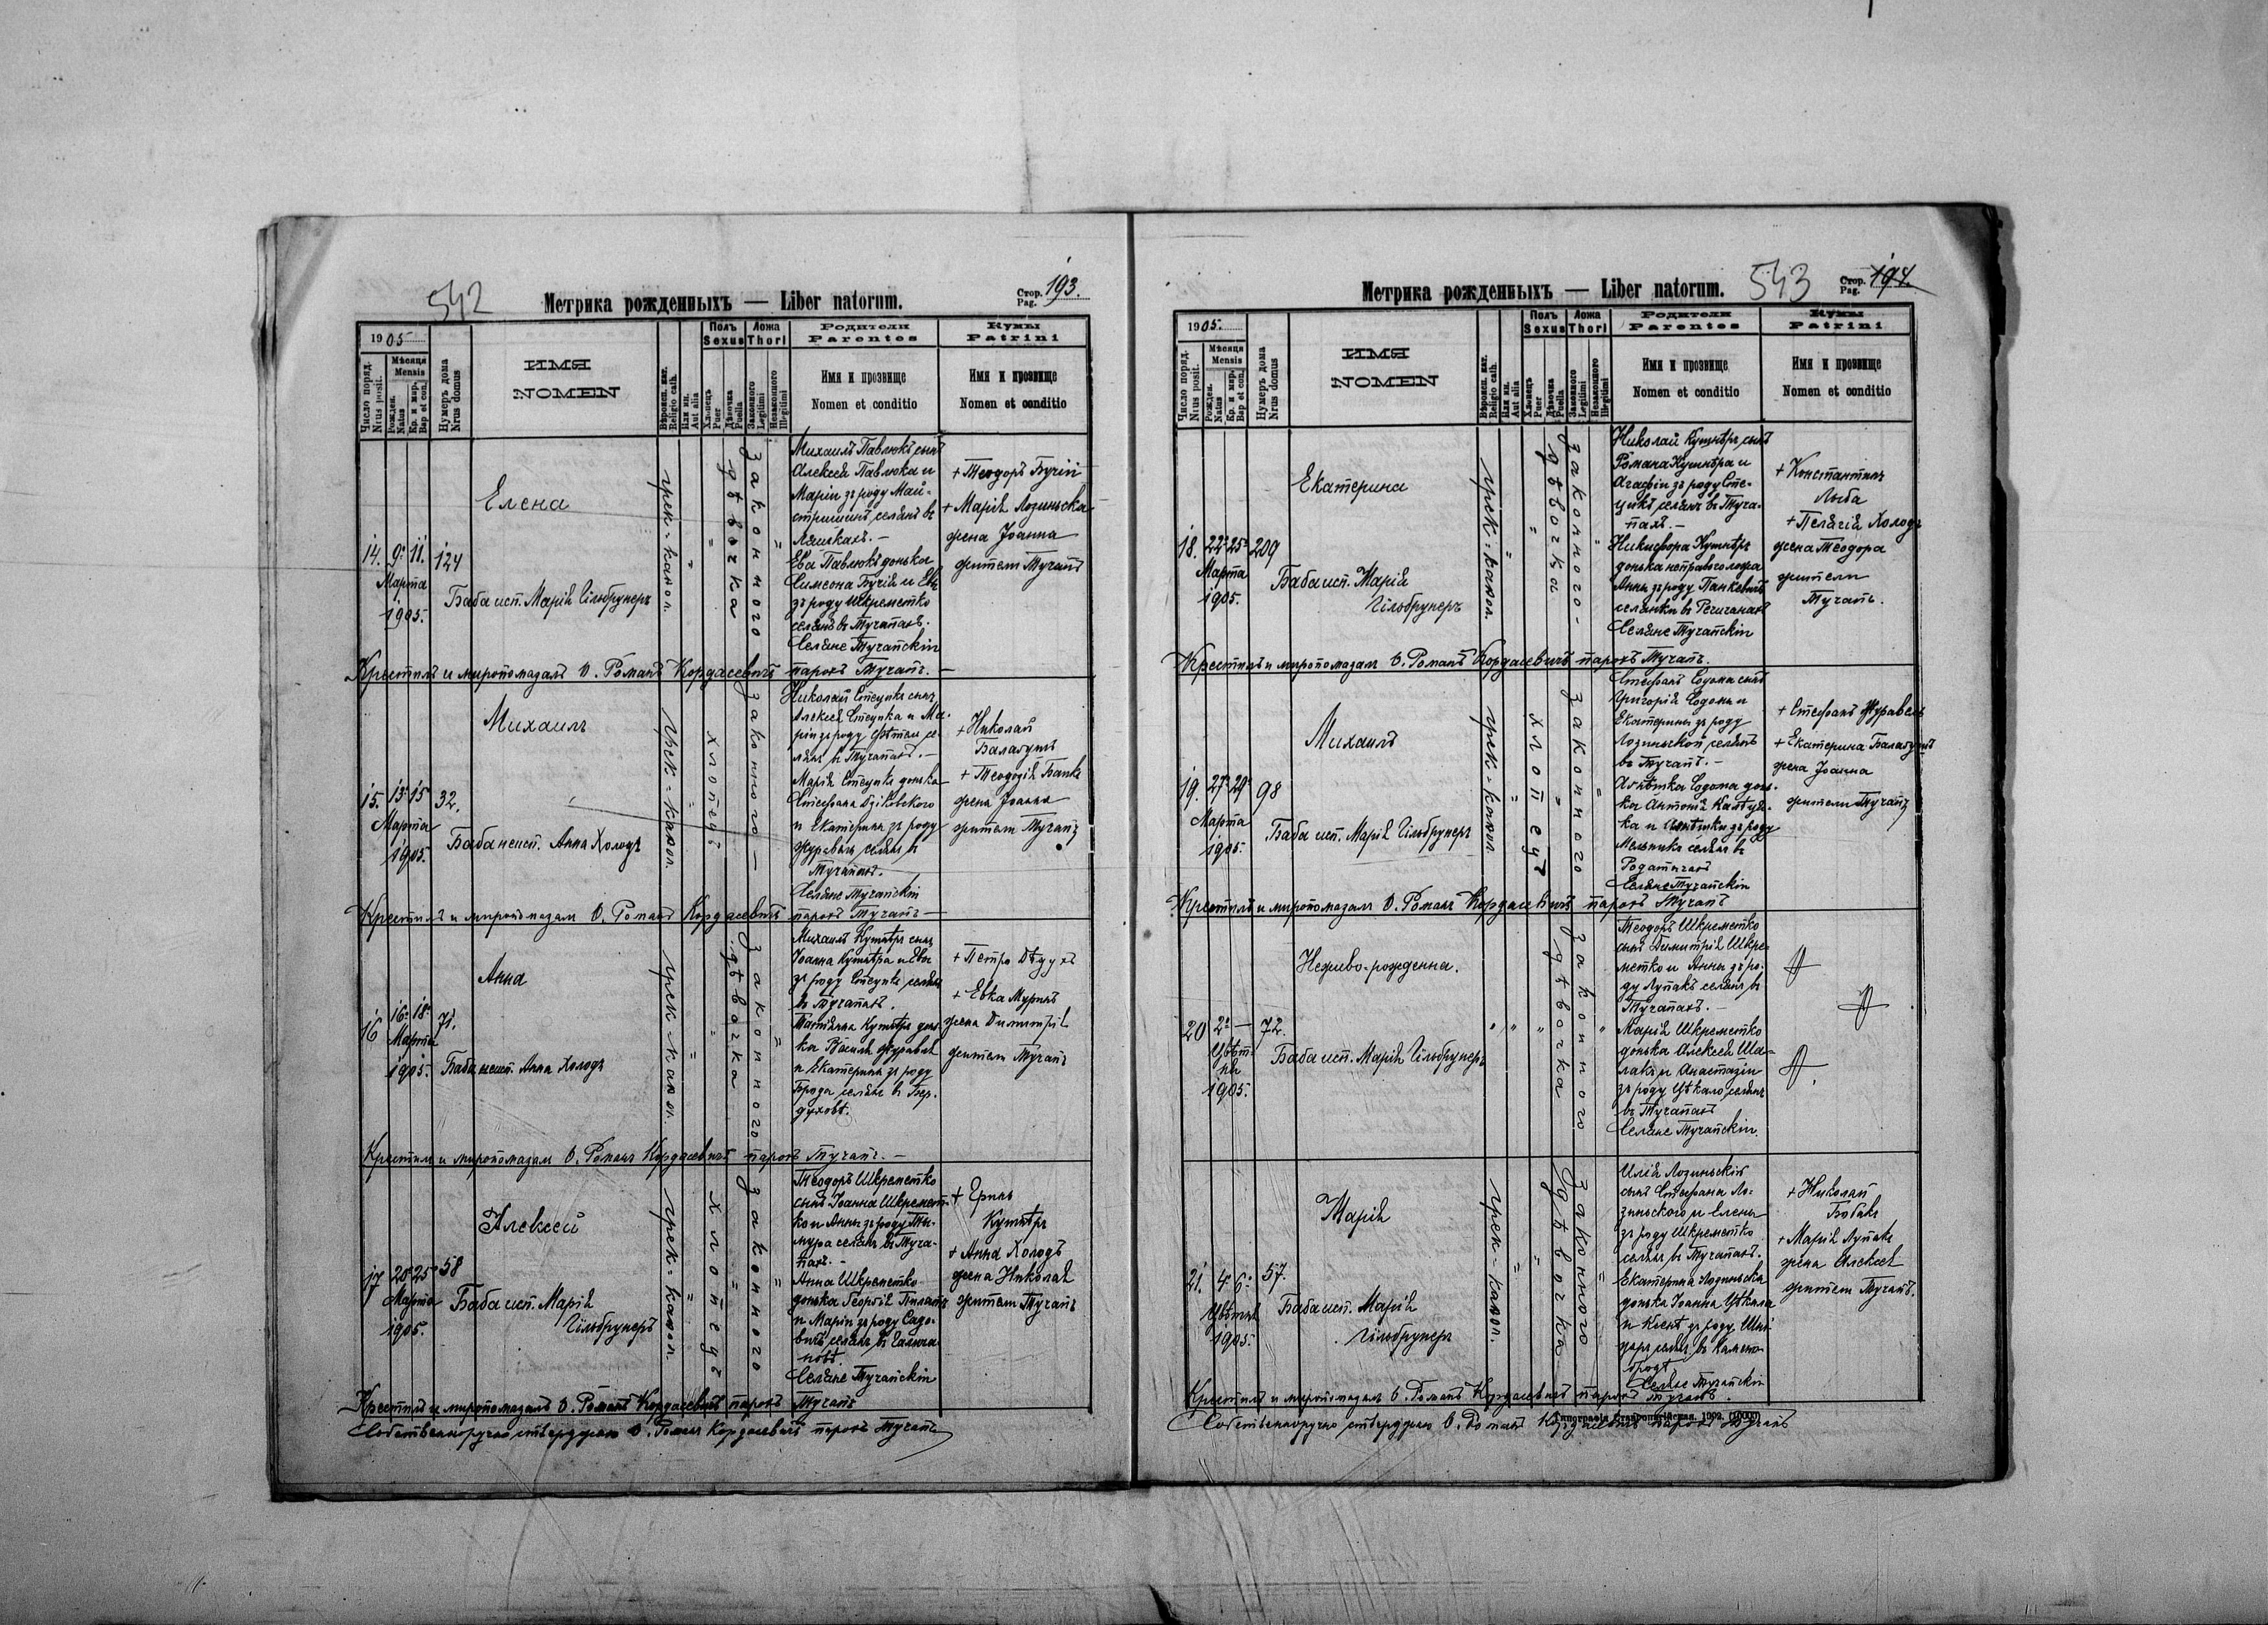 542
Метрика рожденныхъ — Liber natorum.
Стор. Pag. 193.
1905
Число поряд. Nrus posit.
Мѣсяця Mensis
Рожден. Natus
Кр. и мир. Bap et con.
Нумеръ дома Nrus domus
ИМЯ
NOMEN
Вѣроисп. кат. Religio cath.
Или ин. Aut alia
Полъ Sexus
Хлопець Puer
Дѣвочка Puella
Ложа Thori
Законного Legitimi
Незаконного Illegitimi
Родители
Parentes
Имя и прозвище
Nomen et conditio
Кумы
Patrini
Имя и прозвище
Nomen et conditio
14. 9. 11. 124
Марта
1905.
Елена
Баба исп. Марія Гільбрунеръ
грек=катол.
дѣвочка
законного
Михаилъ Павлюкъ сынъ
Алексея Павлюка и
Маріи зъ роду Май-
стришинъ, селянъ въ
Ляшкахъ. —
Ева Павлюкъ донька
Симеона Бучія и Евы
зъ роду Шкреметко
селянъ въ Тучапахъ.
Селяне Тучапскіи
+ Теодоръ Бучій
+ Марія Лозиньска
жена Іоанна
жители Тучапъ
Крестилъ и миропомазалъ О. Романъ Кордасевичъ парохъ Тучапъ. —
15. 13. 15 32.
Марта
1905.
Михаилъ
Баба неисп. Анна Холодъ
грек=катол.
хлопецъ
законного —
Николай Стецула сынъ
Алексея Стецула и Ма-
ріи зъ роду се-
лянъ въ Тучапахъ. —
Марія Стецула донька
Стефана Дзіковского
и Екатерины зъ роду
Журавель селянъ въ
Тучапахъ.
Селяне Тучапскіи
+ Николай
Балабухъ
+ Теодозія Банке
жена Іоанна
жители Тучапъ
Крестилъ и миропомазалъ О. Романъ Кордасевичъ парохъ Тучапъ —
16 16. 18. 71.
Марта
1905.
Анна
Баба неисп. Анна Холодъ
грек=катол.
дѣвочка
законного
Михаилъ Кушнѣръ сынъ
Іоанна Кушнѣра и Евы
зъ роду Стецула селянъ
въ Тучапахъ.
Татіянна Кушнѣръ донь-
ка Василія Журавля
и Екатерины зъ роду
Брода селянъ въ Бер-
духовѣ.
+ Петро Дѣдухъ
+ Евка Муринъ
жена Димитрія
жители Тучапъ
Крестилъ и миропомазалъ О. Романъ Кордасевичъ парохъ Тучапъ. —
17 20. 25 58
Марта
1905.
Алексей
Баба исп. Марія
Гільбрунеръ
грек=катол.
хлопецъ
законного
Теодоръ Шкреметко
сынъ Іоанна Шкремет-
ко и Анны зъ роду
селянъ въ Туча-
пахъ. —
Анна Шкреметко
донька Георгія
и Маріи зъ роду Садо-
вичъ, селянъ въ
Селяне Тучапскіи
+ Ериль
Кушнѣръ
+ Анна Холодъ
жена Николая
жители Тучапъ
Крестилъ и миропомазалъ О. Романъ Кордасевичъ парохъ Тучапъ
Собственноручно стверджаю О. Романъ Кордасевичъ парохъ Тучапъ
543
Метрика рожденныхъ — Liber natorum.
Стор. Pag. 194.
1905.
Число поряд. Nrus posit.
Мѣсяця Mensis
Рожден. Natus
Кр. и мир. Bap et con.
Нумеръ дома Nrus domus
ИМЯ
NOMEN
Вѣроисп. кат. Religio cath.
Или ин. Aut alia
Полъ Sexus
Хлопець Puer
Дѣвочка Puella
Ложа Thori
Законного Legitimi
Незаконного Illegitimi
Родители
Parentes
Имя и прозвище
Nomen et conditio
Кумы
Patrini
Имя и прозвище
Nomen et conditio
18. 22. 25. 209
Марта
1905.
Екатерина
Баба исп. Марія
Гільбрунеръ
грек=катол.
дѣвочка
законного —
Николай Кушнѣръ, сынъ
Романа Кушнѣра и
Агафіи зъ роду Сте-
цикъ, селянъ въ Туча-
пахъ. —
Никифора Кушнѣръ
донька неправого ложа
Анны зъ роду Панкевичъ
селянки въ Речичанахъ
Селяне Тучапскіи
+ Константинъ
Лыба
+ Пелагія Холодъ
жена Теодора
жители
Тучапъ.
Крестилъ и миропомазалъ О. Романъ Кордасевичъ парохъ Тучапъ.
19. 27. 29. 98
Марта
1905.
Михаилъ
Баба исп. Марія Гільбрунеръ
грек=катол.
хлопецъ
законного
Стефанъ Содома сынъ
Григорія Содомы и
Екатерины зъ роду
Лозиньской, селянъ
въ Тучапъ. —
Донька Содома донь-
ка Антонія
ка и зъ роду
Мельника селянъ въ
Родатичахъ
Селяне Тучапскіи
+ Стефанъ Журавель
+ Екатерина Балабухъ
жена Іоанна
жители Тучапъ
Крестилъ и миропомазалъ О. Романъ Кордасевичъ парохъ Тучапъ
20 2. — 72.
Цвѣт-
ня
1905.
Неживо-рожденна.
Баба исп. Марія Гільбрунеръ
дѣвочка
законного
Теодоръ Шкреметко
сынъ Димитрія Шкре-
метко и Анны зъ ро-
ду Лупакъ селянъ въ
Тучапахъ. —
Марія Шкреметко
донька Алексея Ша-
лакъ и Анастазіи
зъ роду Цѣкало, селянъ
въ Тучапахъ
Селяне Тучапскіи.
21. 4. 6. 57.
Цвѣтня
1905.
Марія
Баба исп. Марія
Гільбрунеръ
грек=катол.
дѣвочка
законного
Илія Лозиньскій
сынъ Стефана Ло-
зиньского и Елены
зъ роду Шкреметко
селянъ въ Тучапахъ.
Екатерина Лозиньска
донька Іоанна Цѣкала
и Ксенѣ зъ роду
селянъ въ Камено-
бродѣ
Селяне Тучапскіи
+ Николай
Бобакъ
+ Марія Лупакъ
жена Алексея
жители Тучапъ.
Крестилъ и миропомазалъ О. Романъ Кордасевичъ парохъ Тучапъ.
Типографія Ставропигійская. 1902. (1000)
Собственноручно стверджаю О. Романъ Кордасевичъ парохъ Тучапъ